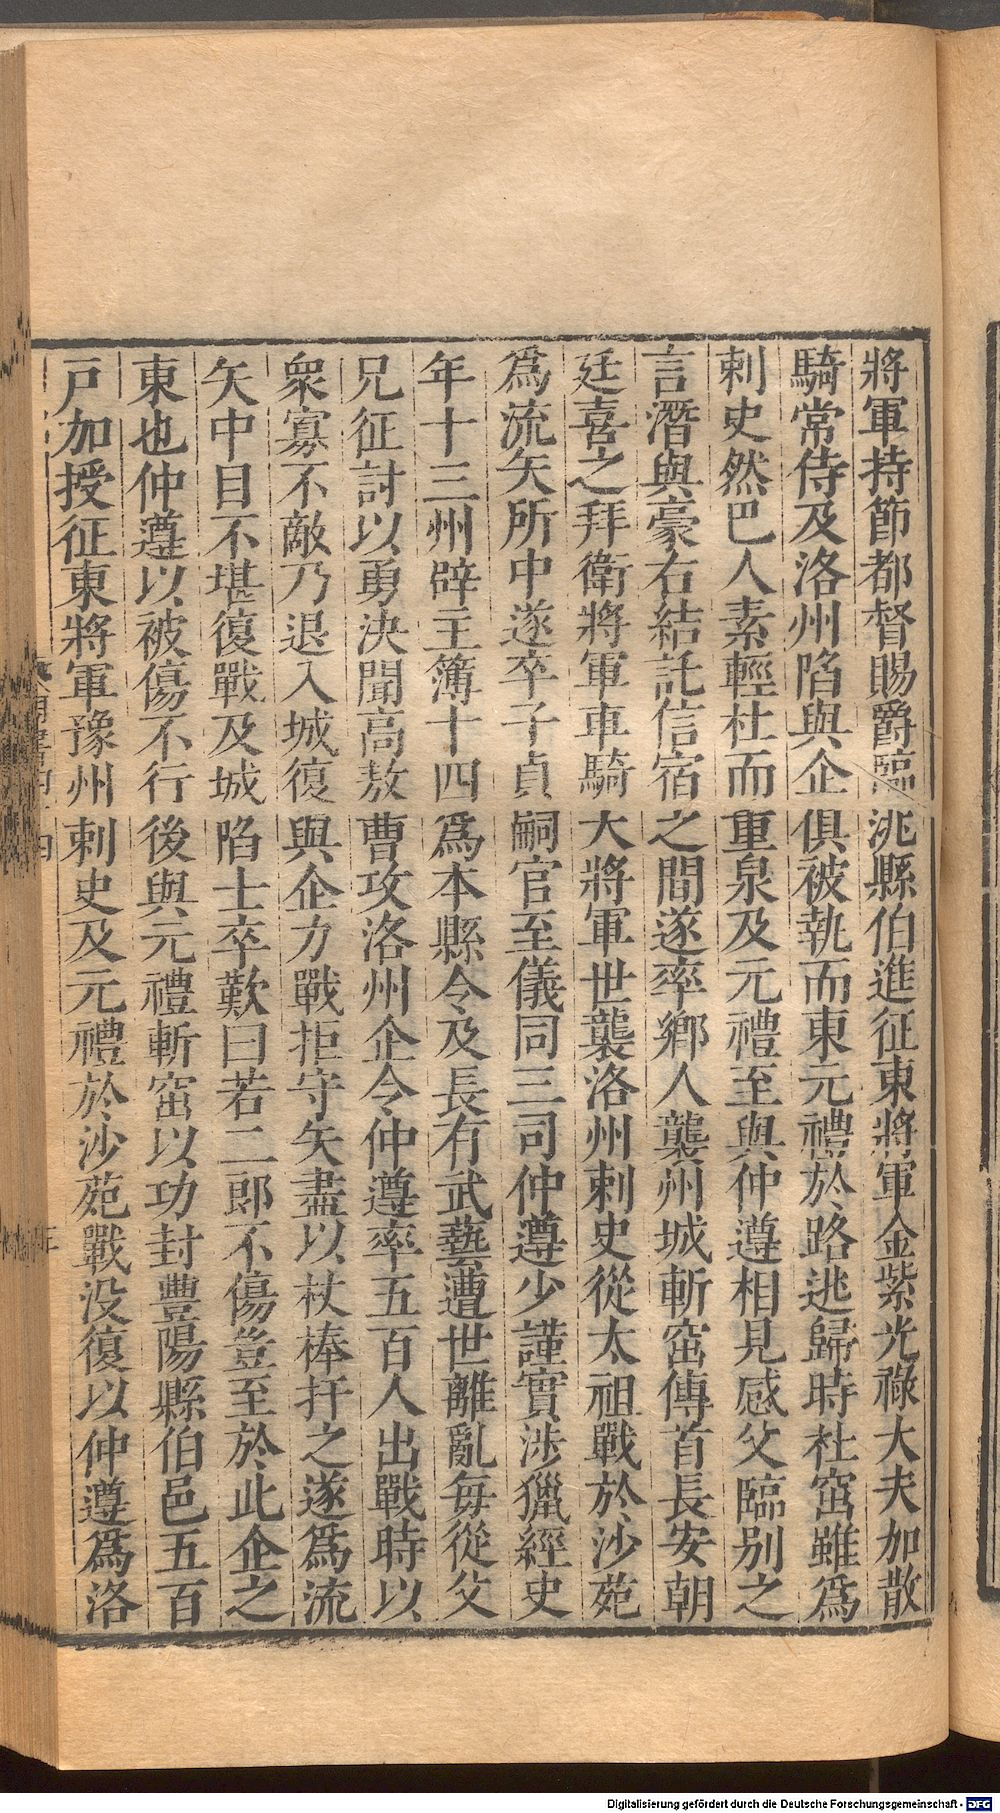 將軍持節都督賜爵臨洮縣伯進征東將軍金紫光祿大夫加散
騎常侍及洛州陷與企俱被執而東元禮於路逃歸時杜窋雖爲
刺史然巴人素輕杜而重泉及元禮至與仲遵相見感父臨别之
言潛與豪右結託信宿之間遂率鄉人襲州城斬窋傳首長安朝
廷喜之拜衛將軍車騎大將軍世襲洛州刺史從太祖戰於沙苑
爲流矢所中遂卒子貞嗣官至儀同三司仲遵少謹實涉獵經史
年十三州辟主簿十四爲本縣令及長有武藝遭世離亂每從父
兄征討以勇決聞高敖曹攻洛州企令仲遵率五百人出戰時以
衆寡不敵乃退入城復與企力戰拒守矢盡以杖棒扞之遂爲流
矢中目不堪復戰及城陷士卒歎曰若二郎不傷豈至於此企之
東也仲遵以被傷不行後與元禮斬窋以功封豐陽縣伯邑五百
戸加授征東將軍豫州刺史及元禮於沙苑戰没復以仲遵爲洛
Digitalisierung gefördert durch die Deutsche Forschungsgemeinschaft - DFG